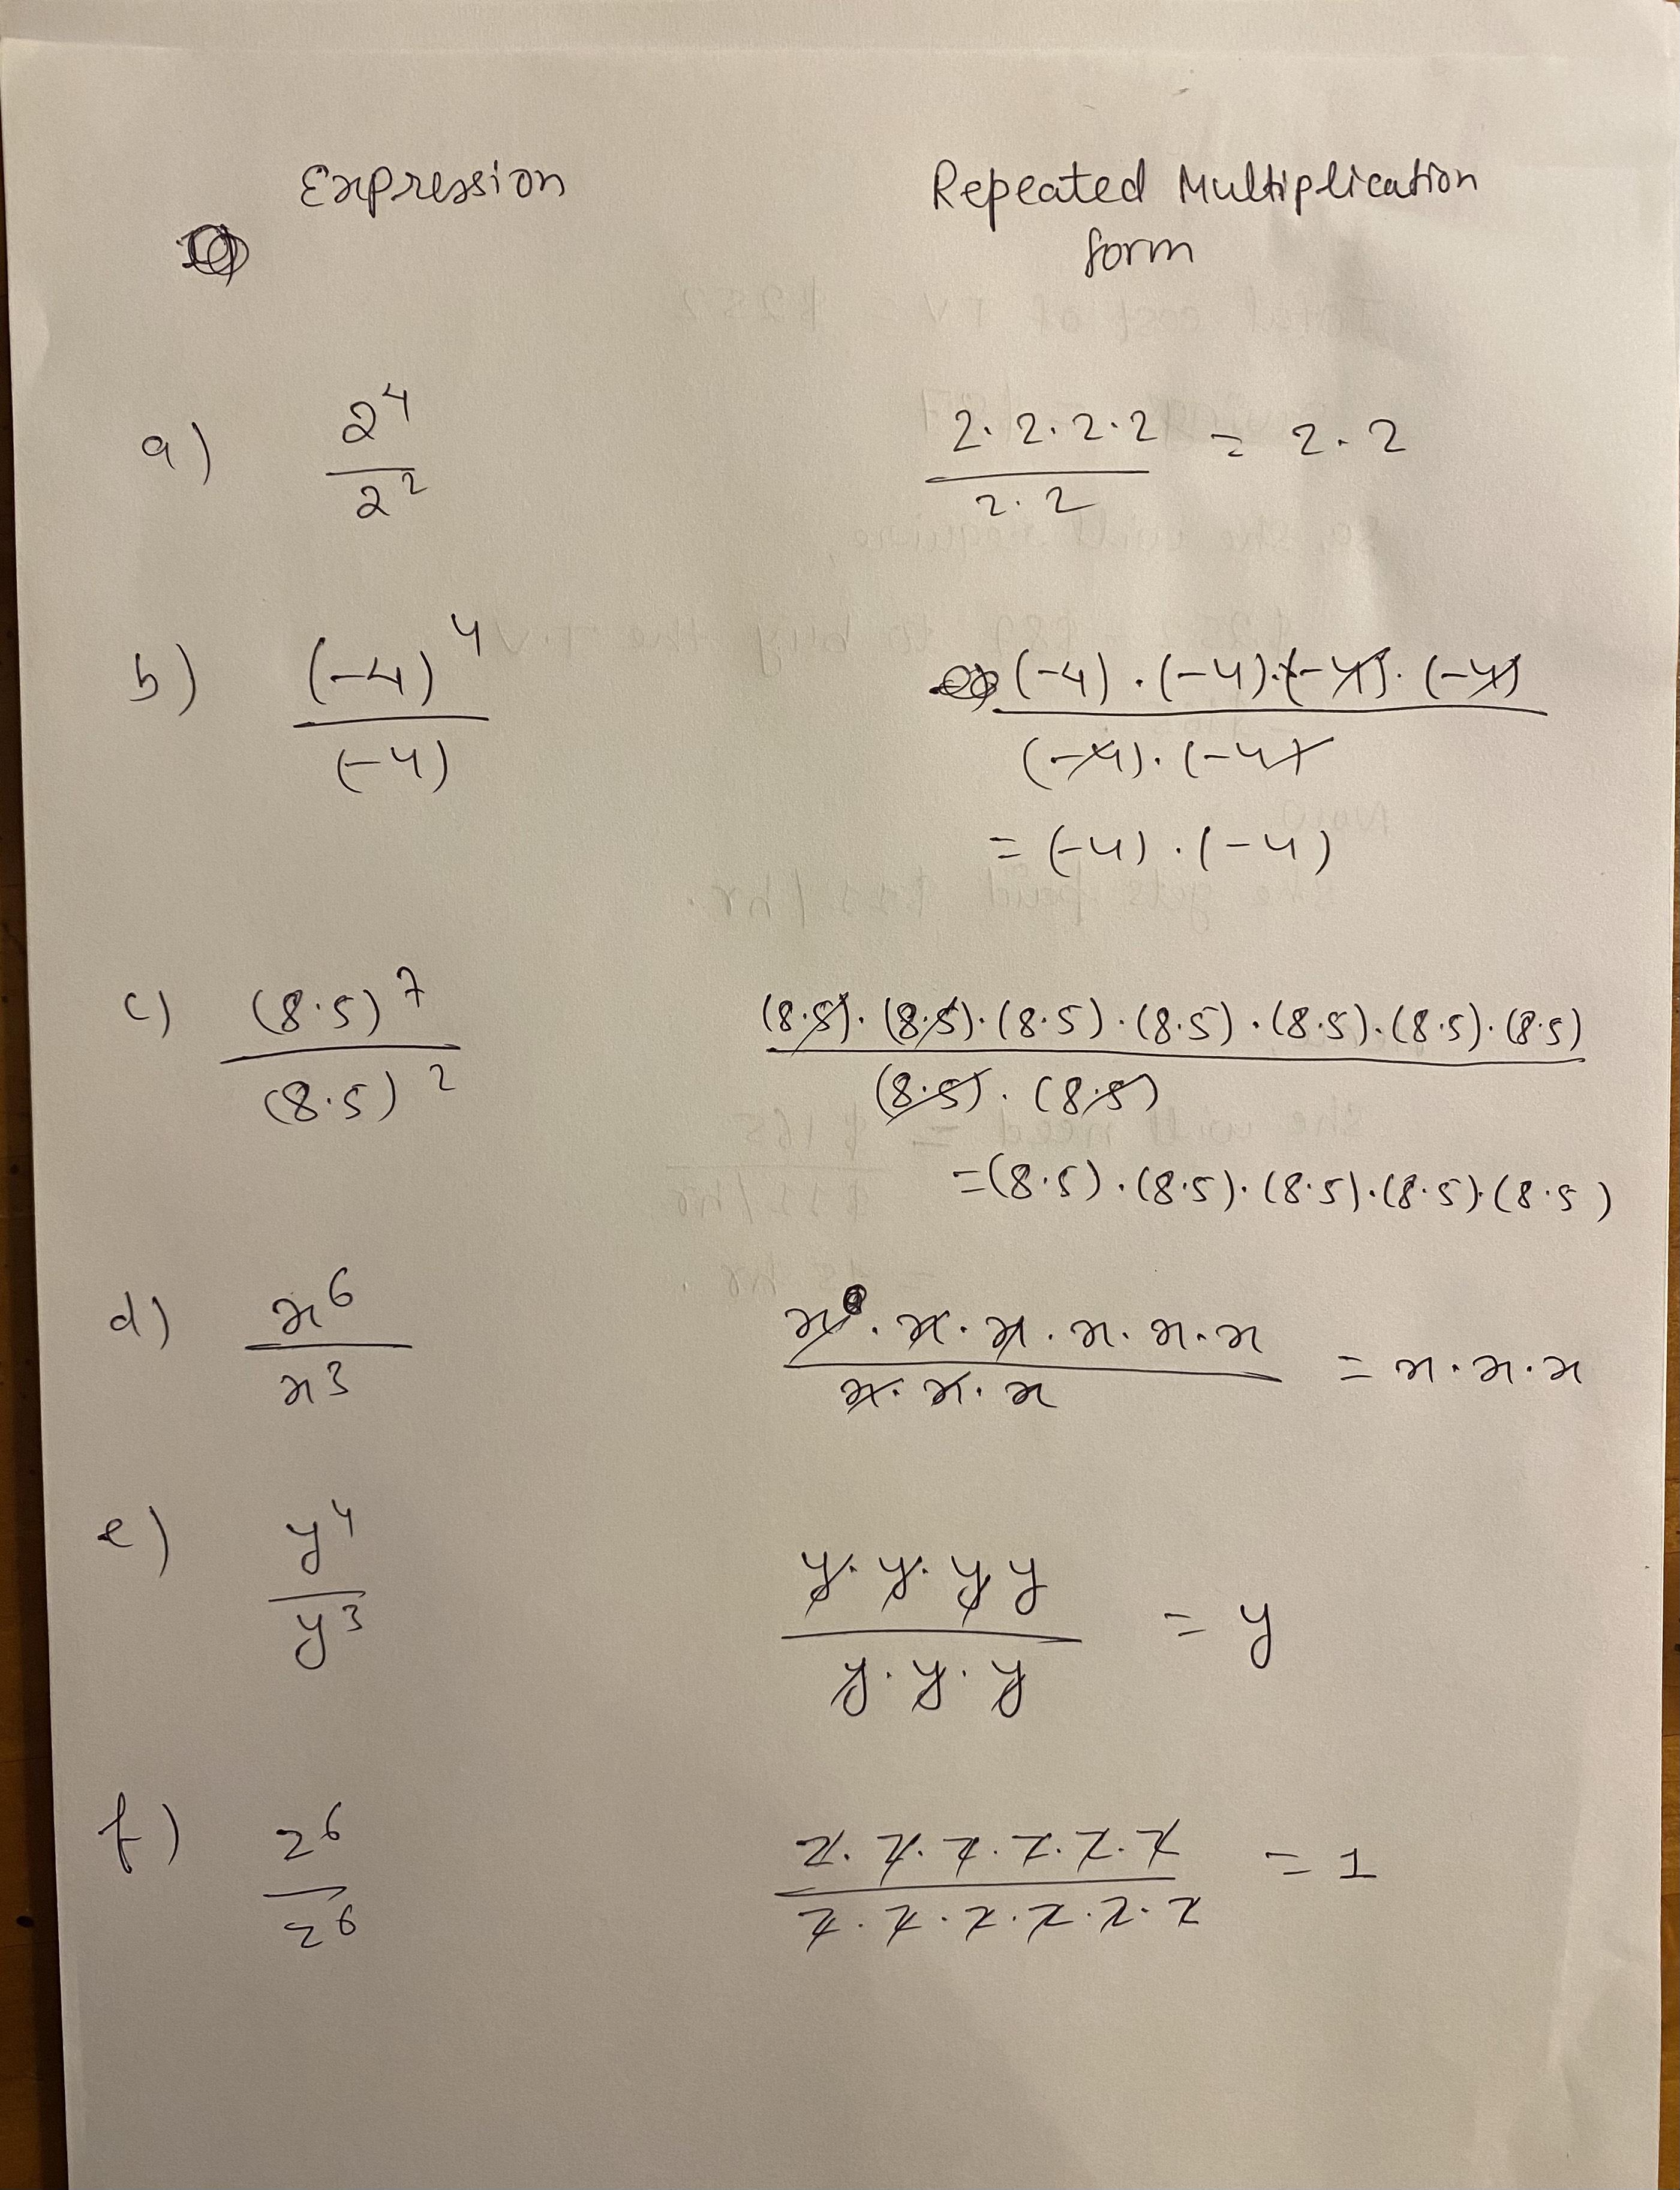 Expression Repeated Multiplication
form
a) 2^4 / 2^2 2 · 2 · 2 · 2 / 2 · 2 = 2 · 2
b) (-4)^4 / (-4) (-4) · (-4) · (-4) · (-4) / (-4) · (-4)
= (-4) · (-4)
c) (8·5)^7 / (8·5)^2 (8·5) · (8·5) · (8·5) · (8·5) · (8·5) · (8·5) · (8·5) / (8·5) · (8·5)
= (8·5) · (8·5) · (8·5) · (8·5) · (8·5)
d) x^6 / x^3 x · x · x · x · x · x / x · x · x = x · x · x
e) y^4 / y^3 y · y · y y / y · y · y = y
f) z^6 / z^6 z · z · z · z · z · z / z · z · z · z · z · z = 1